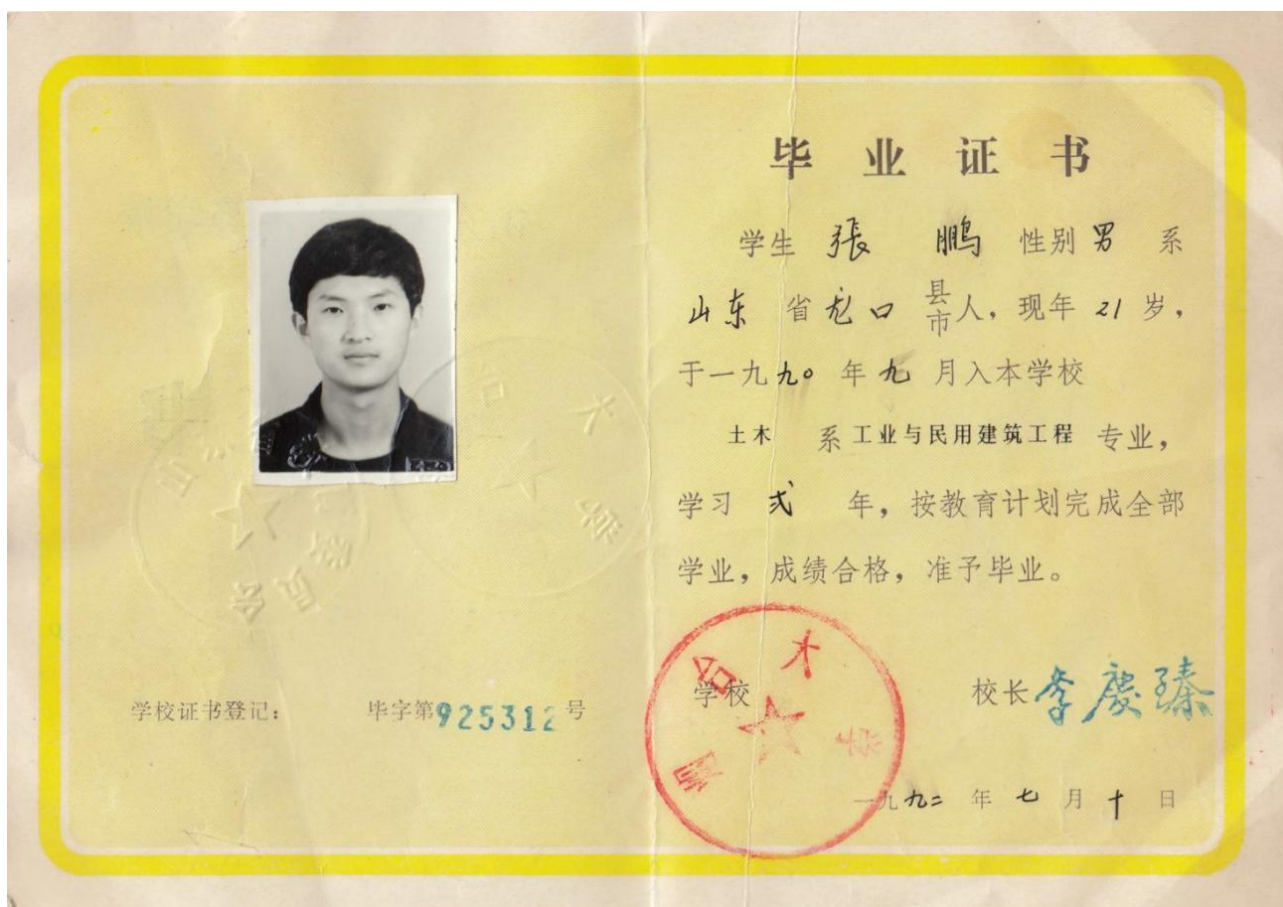 毕业证书
学生 張 鹏 性别 男 系
山东 省 龙口 县市人，现年 21 岁，
于一九九〇年九月入本学校
土木 系 工业与民用建筑工程 专业，
学习 弍 年，按教育计划完成全部
学业，成绩合格，准予毕业。
学校 校长 李庆臻
一九九二年七月十日
学校证书登记： 毕字第925312号
烟台大学